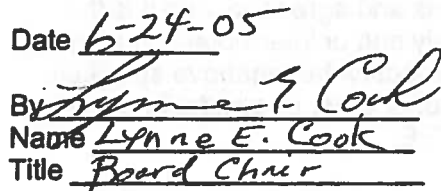 Date 6-24-05
By Lynne E. Cook
Name Lynne E. Cook
Title Board Chair